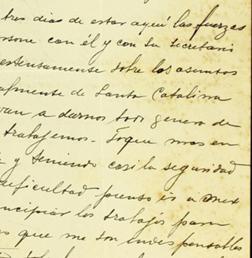 tres dias de estar aquí las fuerzas
rsone con él y con su Secretario
extensamente sobre los asuntos
almente de Santa Catalina
van a darnos todo genero de
trabajemos.- Toque mas en
y teniendo casi la seguridad
deficultad pienso ir a Mex
incipiar los trabajos para
os que me son indispensables